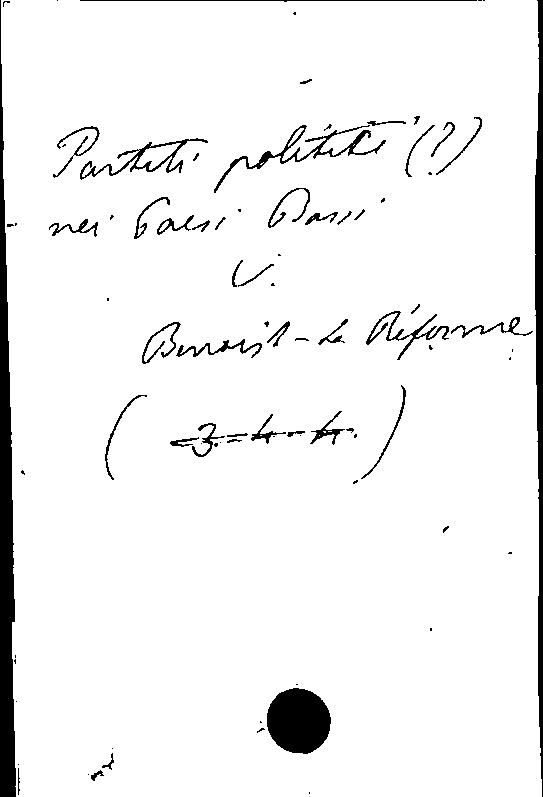 Partiti politici (?)
nei Paesi Bassi
V.
Benoist - La Réforme
( 3-4-4. )